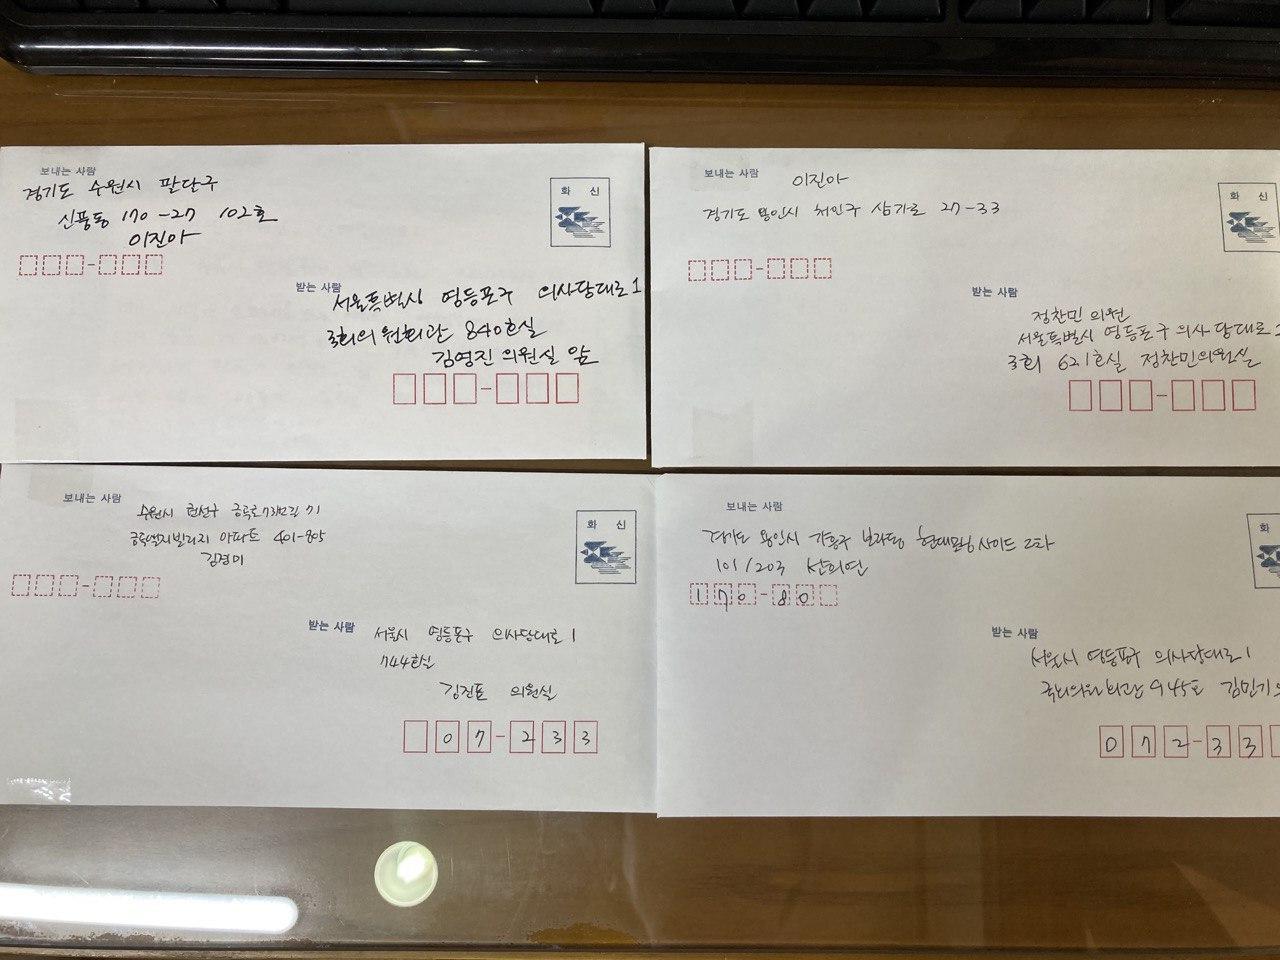 보내는 사람
경기도 수원시 팔달구
신풍동 170-27 102호
이진아
화 신
받는 사람
서울특별시 영등포구 의사당대로 1
국회의원회관 840호실
김영진 의원실 앞
보내는 사람
이진아
경기도 용인시 처인구 삼가로 27-33
화 신
받는 사람
정찬민 의원
서울특별시 영등포구 의사당대로 1
국회 621호실 정찬민의원실
보내는 사람
수원시 권선구 금곡로73번길 71
금곡엘지빌리지 아파트 401-805
김경미
화 신
받는 사람
서울시 영등포구 의사당대로 1
744호실
김진표 의원실
07-233
보내는 사람
경기도 용인시 기흥구 보라동 현대모닝사이드 2차
101/203
170-80
화
받는 사람
서울시 영등포구 의사당대로 1
국회의원회관 945호 김민기
072-33